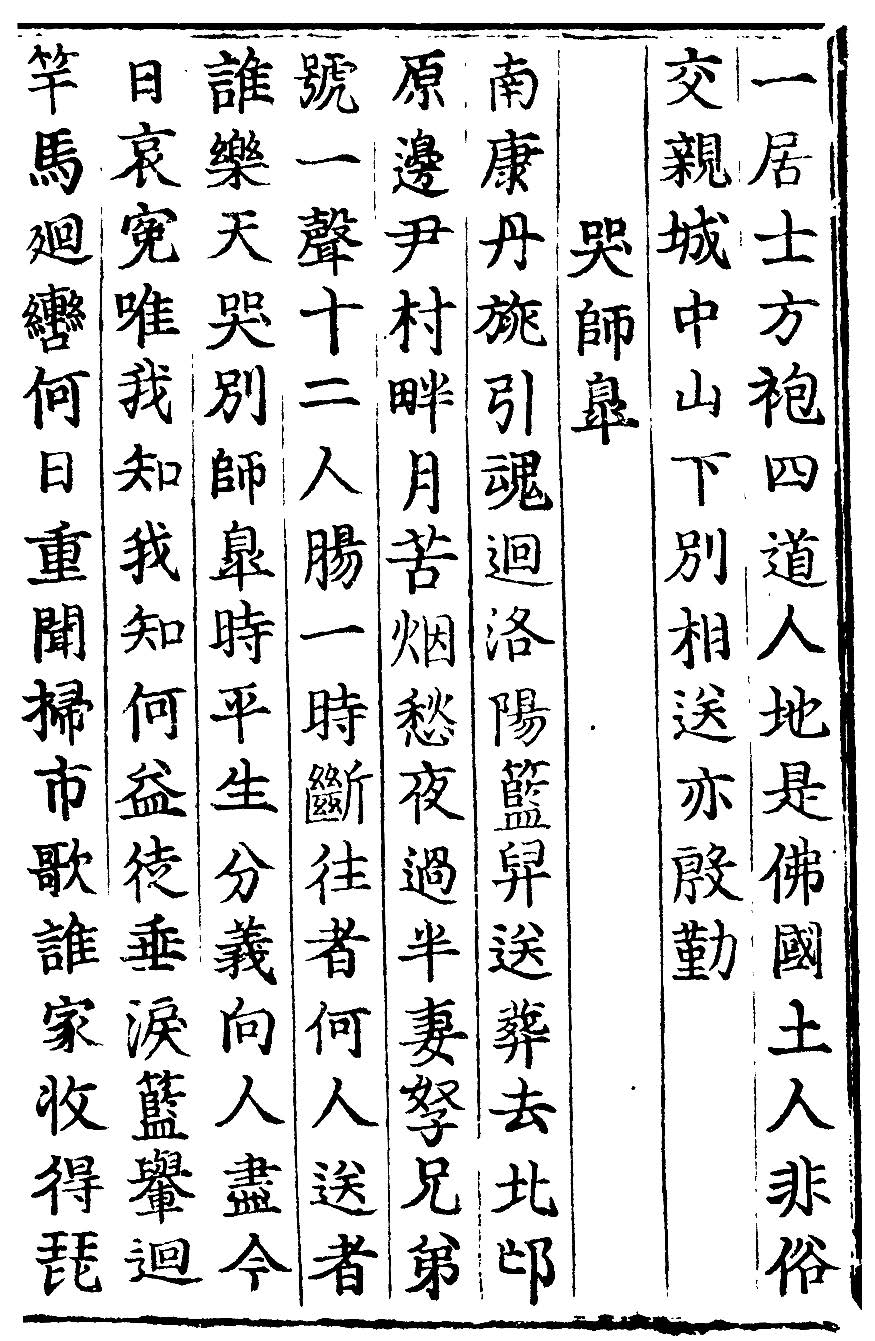 一居士方袍四道人地是佛國土人非俗
交親城中山下別相送亦殷勤
哭師皐
南康丹旐引魂迴洛陽籃舁送葬去北邙
原邊尹村畔月苦烟愁夜過半妻孥兄弟
號一聲十二人腸一時斷往者何人送者
誰樂天哭別師皐時平生分義向人盡今
日哀寃唯我知我知何益徒垂淚籃轝迴
竿馬廻轡何日重聞掃市歌誰家收得琵